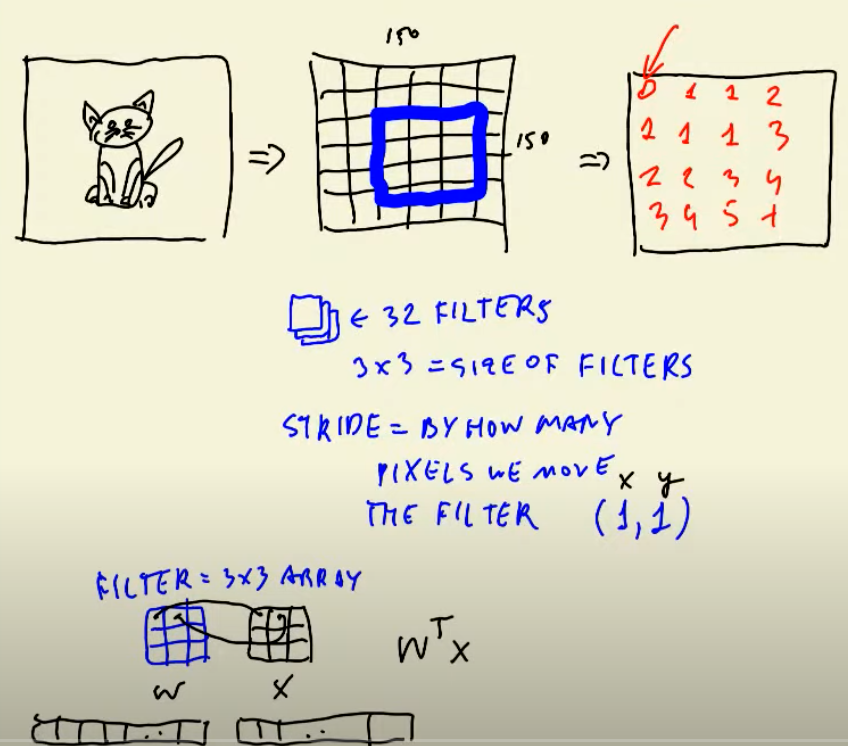 150
150
0 1 1 2
1 1 1 3
2 2 3 4
3 4 5 1
← 32 FILTERS
3x3 = SIZE OF FILTERS
STRIDE = BY HOW MANY
PIXELS WE MOVE
x y
THE FILTER (1,1)
FILTER = 3x3 ARRAY
W X
WᵀX